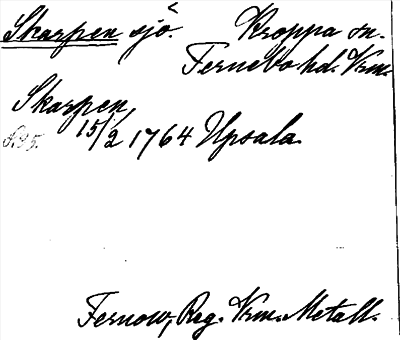 Skarpen sjö. Kroppa sn.
Fernebo hd. Vrm.
Skarpen,
15/2 1764 Upsala.
Fernow, Reg. Vrm. Metall.